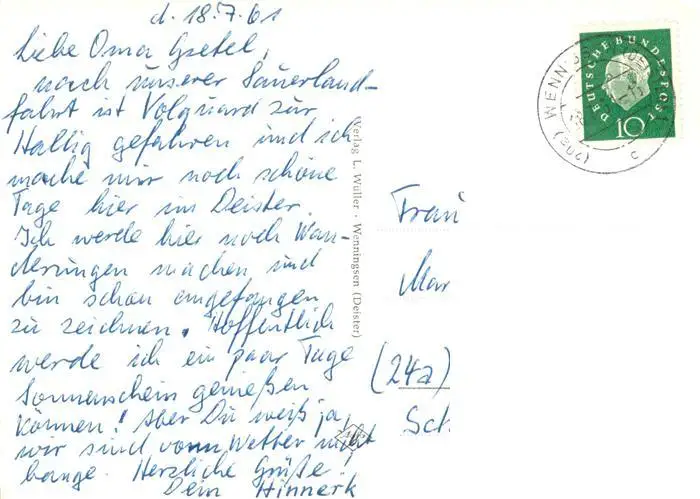 d. 18.7.61
Liebe Oma Gretel,
nach unserer Sauerland-
fahrt ist Volquard zur
Hallig gefahren und ich
mache mir noch schöne
Tage hier im Deister.
Ich werde hier noch Wan-
derungen machen und
bin schon angefangen
zu zeichnen. Hoffentlich
werde ich ein paar Tage
Sonnenschein genießen
können! Aber Du weißt ja,
wir sind vorm Wetter nicht
bange. Herzliche Grüße!
Dein Hinnerk
Verlag L. Wüller · Wenningsen (Deister)
DEUTSCHE BUNDESPOST
10
(20a) WENNIGS
c
Frau
Mar
(24a)
Sch